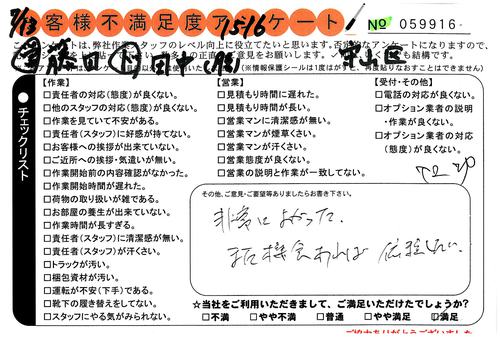 お客様不満足度アンケート! № 059916
7/13 1516
このアンケートは、弊社作業スタッフのレベル向上に役立てたいと思います。否定的なアンケートになりますので、
藤田 守山区
【作業】
□責任者の対応(態度)が良くない。
□他のスタッフの対応(態度)が良くない。
□作業を見ていて不安がある。
□責任者(スタッフ)に好感が持てない。
□お客様への挨拶が出来ていない。
□ご近所への挨拶・気遣いが無い。
□作業開始前の内容確認がなかった。
□作業開始時間が遅れた。
□荷物の取り扱いが雑である。
□お部屋の養生が出来ていない。
□作業時間が長すぎる。
□責任者(スタッフ)に清潔感が無い。
□責任者(スタッフ)が汗くさい。
□トラックが汚い。
□梱包資材が汚い。
□運転が不安(下手)である。
□靴下の履き替えをしてない。
□スタッフにやる気がみられない。
【営業】
□見積もり時間に遅れた。
□見積もり時間が長い。
□営業マンに清潔感が無い。
□営業マンが煙草くさい。
□営業マンが汗くさい。
□営業態度が良くない。
□営業の説明と作業が一致してない。
【受付・その他】
□電話の対応が良くない。
□オプション業者の説明
・作業が良くない。
□オプション業者の対応
(態度)が良くない。
●チェックリスト
その他、ご意見・ご要望等ありましたらお書き下さい。
非常によかった。
また機会あれば依頼したい
☆当社をご利用いただきまして、ご満足いただけたでしょうか?
□不満 □やや不満 □普通 □やや満足 □満足
ご協力ありがとうございました